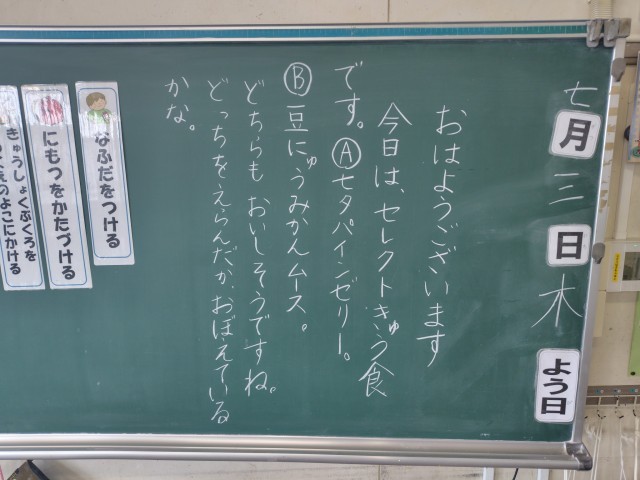 七月三日木よう日
おはようございます
今日は、セレクトきゅう食
です。Ⓐ七夕パインゼリー。
Ⓑ豆にゅうみかんムース。
どちらも おいしそうですね。
どっちをえらんだか、おぼえている
かな。
なふだをつける
にもつをかたづける
きゅうしょくぶくろを